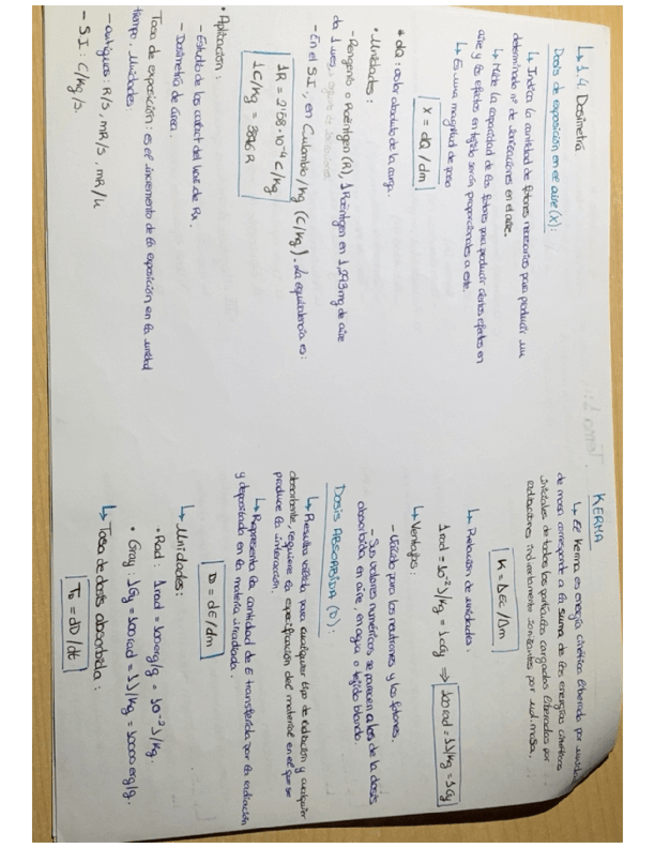 ↳ 1.4. Dosimetría
Dosis de exposición en el aire (X):
↳ Indica la cantidad de fotones necesarios para producir un
determinado nº de ionizaciones en el aire.
↳ Mide la capacidad de los fotones para producir ciertos efectos en
aire y los efectos en tejido serán proporcionales a este.
↳ Es una magnitud de paso
X = dQ/dm
* dQ: valor absoluto de la carga.
• Unidades:
- Rengenio o Roentgen (R), 1 Roentgen en 1,293 mg de aire
da 1 ues,
- En el S.I., en Culombio/Kg (C/Kg). La equivalencia es:
1R = 2'58·10⁻⁴ C/Kg
1C/Kg = 3876 R
• Aplicación:
- Estudio de las caract. del haz de Rx.
- Dosimetría de área.
Tasa de exposición: es el incremento de la exposición en la unidad
tiempo. Unidades:
- antiguas: R/s, mR/s, mR/h
- S.I: C/Kg/s.
KERMA
↳ El Kerma es energía cinética liberada por unidad
de masa corresponde a la suma de las energías cinéticas
iniciales de todas las partículas cargadas liberadas por
radiaciones indirectamente ionizantes por ud. masa.
K = ΔEc/Δm
↳ Relación de unidades:
1 rad = 10⁻² J/Kg = 1 cGy ⇒ 100 rad = 1J/Kg = 1Gy
↳ Ventajas:
- Válido para los neutrones y los fotones.
- Sus valores numéricos se parecen a los de la dosis
absorbida en aire, en agua o tejido blando.
DOSIS ABSORBIDA (D):
↳ Resulta válida para cualquier tipo de radiación y cualquier
absorbente, requiere la especificación del material en el que se
produce la interacción.
↳ Representa la cantidad de E transferida por la radiación
y depositada en la materia irradiada.
D = dE/dm
↳ Unidades:
• Rad: 1rad = 100erg/g = 10⁻² J/Kg.
• Gray: 1Gy = 100rad = 1J/Kg = 10000 erg/g.
↳ Tasa de dosis absorbida:
T_D = dD/dt